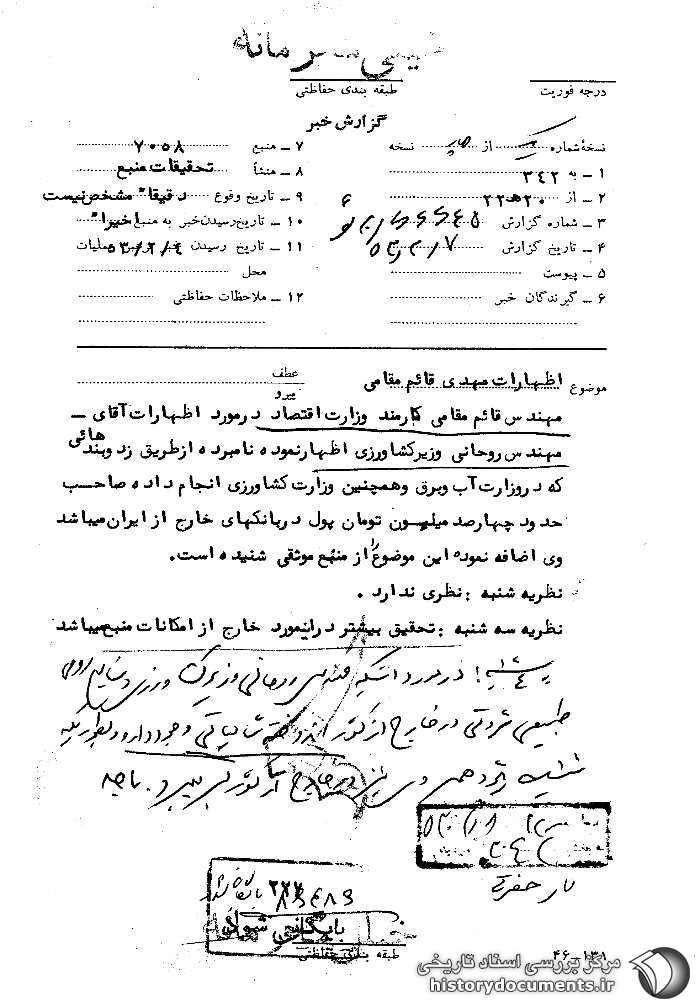 خیلی محرمانه
طبقه بندی حفاظتی
درجه فوریت
گزارش خبر
نسخه شماره یک از چهار نسخه
۱ ـ به ۳۴۲
۲ ـ از ۲۰هـ۲۲
۳ ـ شماره گزارش
۴ ـ تاریخ گزارش
۵ ـ پیوست
۶ ـ گیرندگان خبر
۷ ـ منبع ۷۰۵۸
۸ ـ منشأ تحقیقات منبع
۹ ـ تاریخ وقوع دقیقا" مشخص نیست
۱۰ ـ تاریخ رسیدن خبر به منبع اخیرا"
۱۱ ـ تاریخ رسیدن خبر عملیات ۵۳/۲/۴
محل
۱۲ ـ ملاحظات حفاظتی
موضوع اظهارات مهدی قائم مقامی
عطف
پیرو
مهندس قائم مقامی کارمند وزارت اقتصاد درمورد اظهارات آقای ـ
مهندس روحانی وزیر کشاورزی اظهارنموده نامبرده ازطریق زد وبند هائی
که دروزارت آب وبرق وهمچنین وزارت کشاورزی انجام داده صاحب
حدود چهارصد میلیسون تومان پول دربانکهای خارج از ایران میباشد
وی اضافه نموده این موضوع را از منبع موثقی شنیده است.
نظریه شنبه : نظری ندارد .
نظریه سه شنبه : تحقیق بیشتر دراینمورد خارج از امکانات منبع میباشد
در مورد اینکه مهندس روحانی وزیر کشاورزی و منابع
طبیعی ثروتی در خارج از کشور اندوخته شایعاتی وجود دارد و بطوریکه
شنیده در خارج از کشور بسر میبرد.
بایگانی شود
طبقه بندی حفاظتی
۴۶-۱۳۱
مرکز بررسی اسناد تاریخی
historydocuments.ir